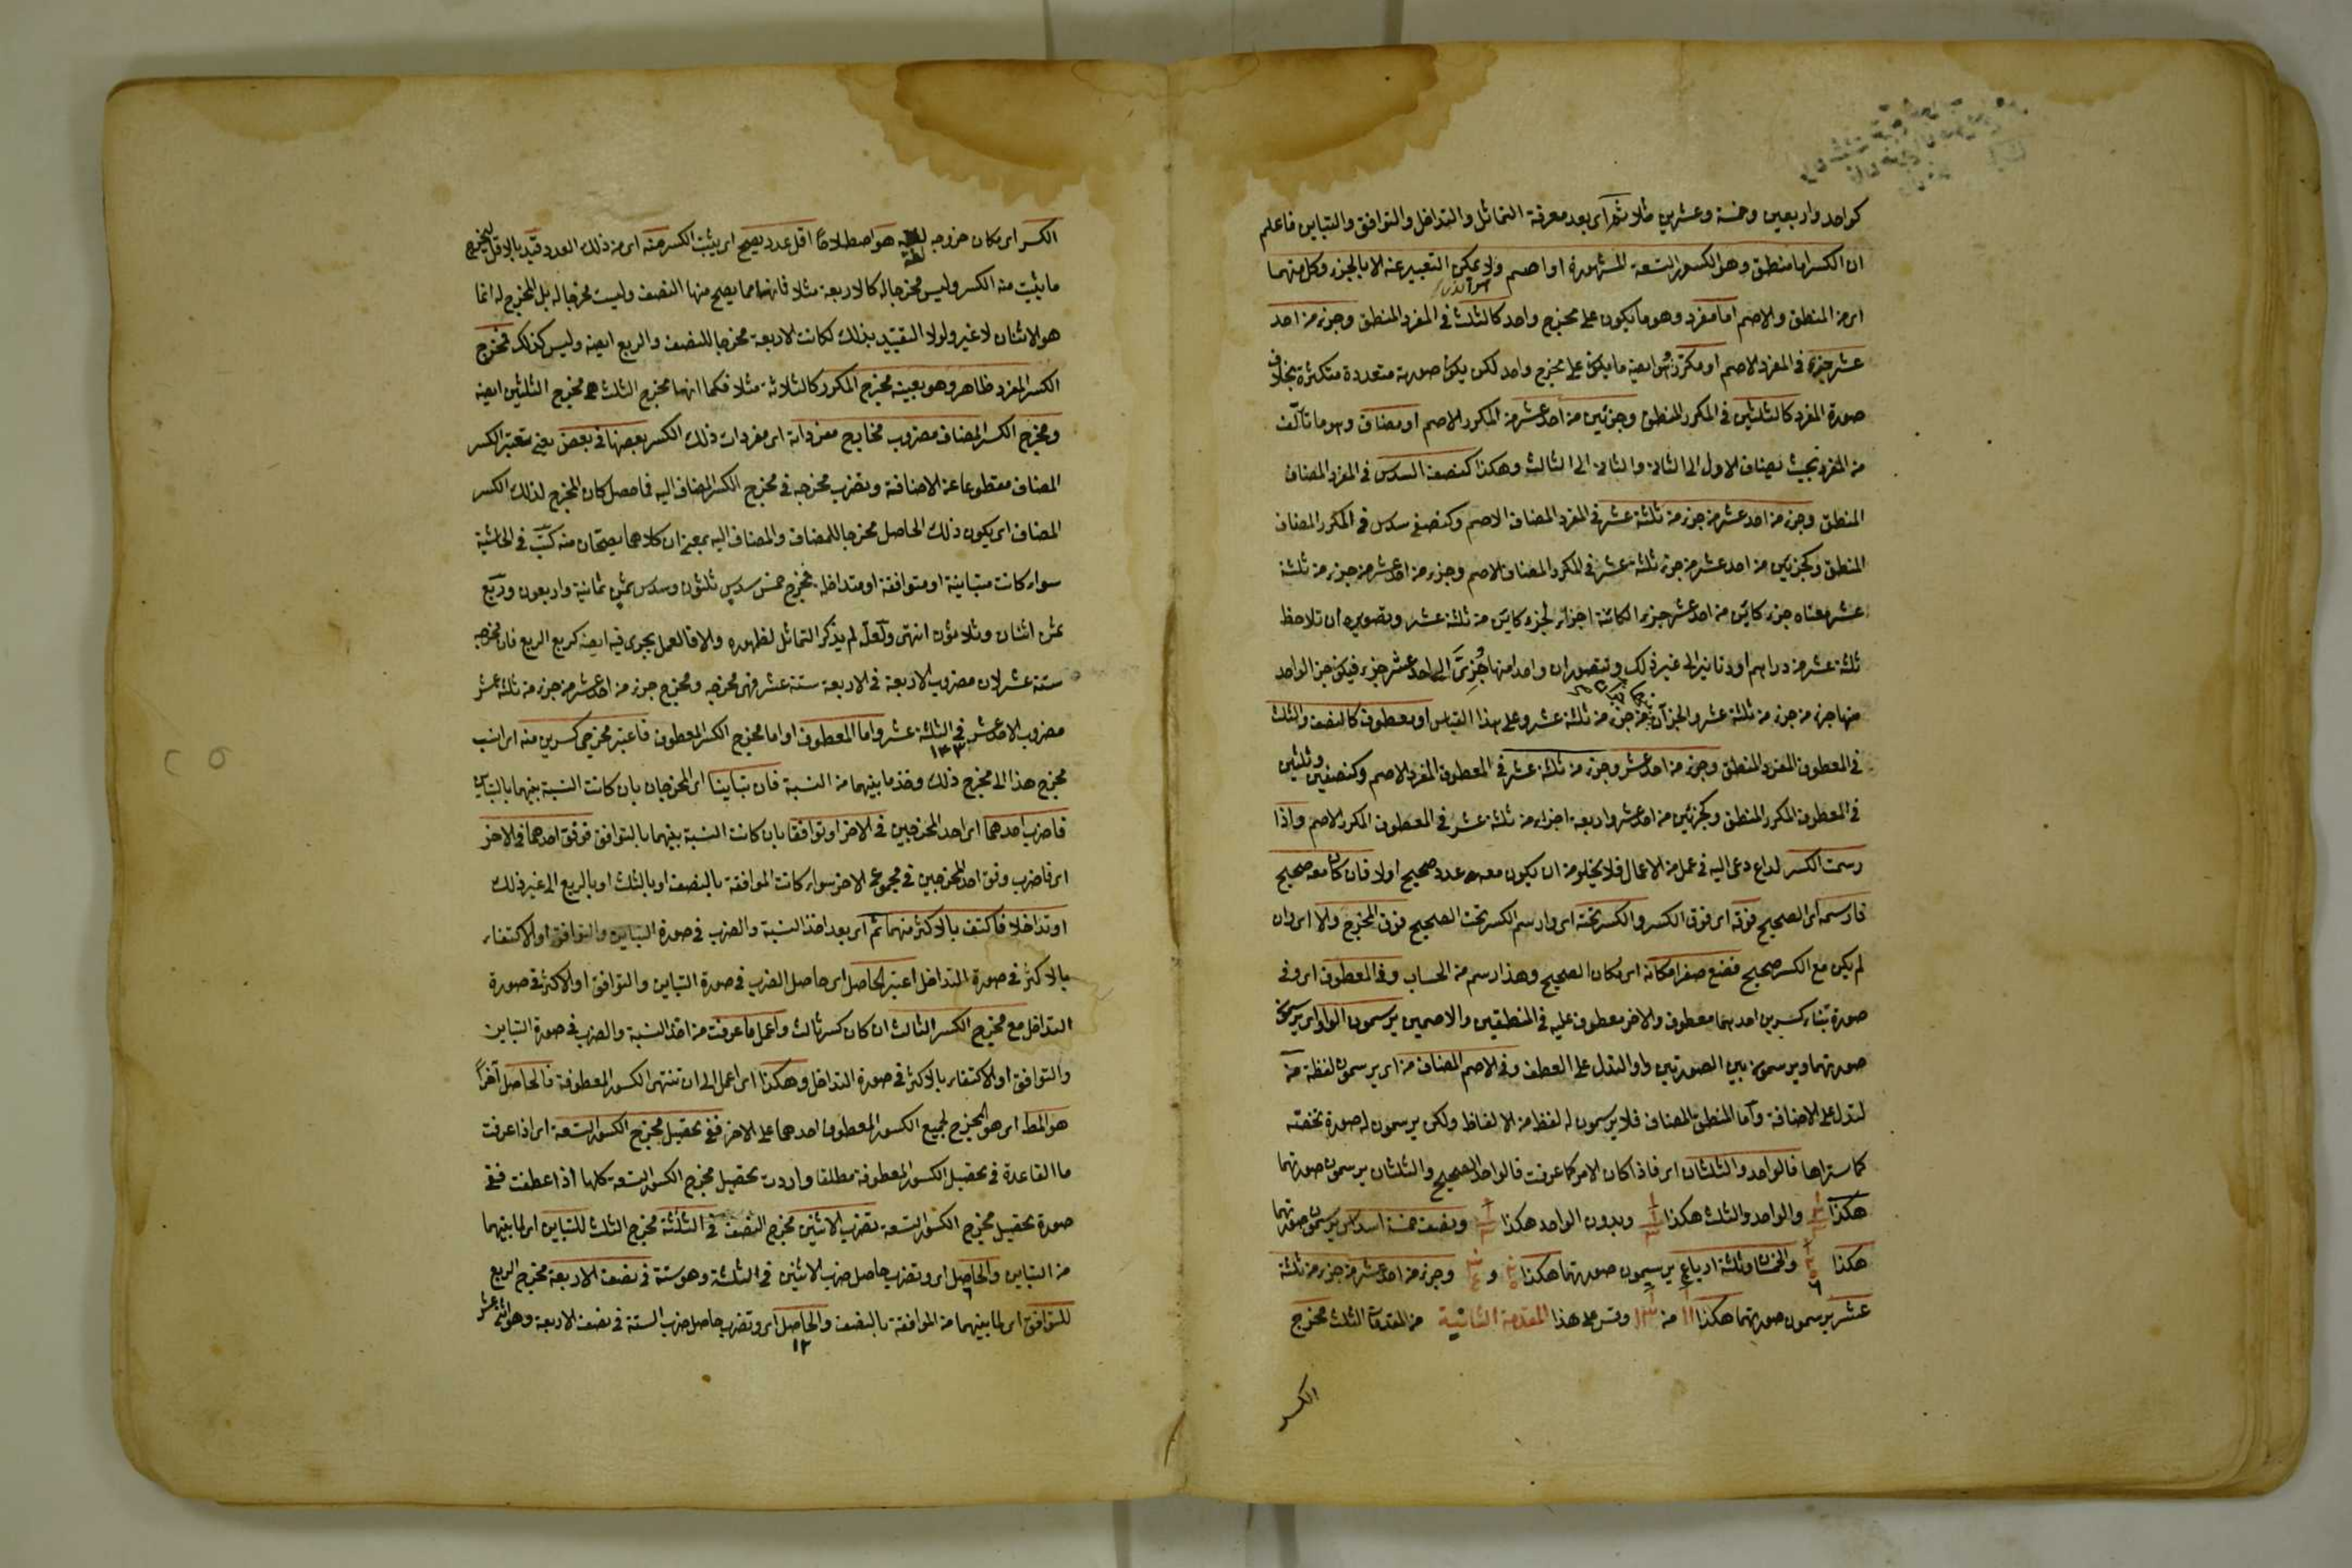 كواحد واربعين وخمسة وعشرين مثلا ثم اى بعد معرفة التماثل والتداخل والتوافق والتباين فاعلم
ان الكسر اما منطق وهو الكسور التسعة المشهورة او اصم ولا يمكن التعبير عنه الا بالجزء وكل منهما
اى من المنطق والاصم اما مفرد وهو ما يكون على مخرج واحد كالثلث فى المفرد المنطق وجزء من احد
عشر جزء فى المفرد الاصم او مكرر وهو ايضه ما يكون على مخرج واحد لكن يكون صورته متعددة متكثرة بخلاف
صورة المفرد كالثلثين فى المكرر المنطق وجزئين من احد عشر من المكرر الاصم او مضاف وهو ما تألف
من المفرد بحيث يضاف الاول الى الثانى والثانى الى الثالث وهكذا كنصف السدس فى المفرد المضاف
المنطق وجزء من احد عشر من جزء من ثلثة عشر فى المفرد المضاف الاصم وكنصفى سدس فى المكرر المضاف
المنطق وكجزئين من احد عشر من جزء ثلثة عشر فى المكرر المضاف الاصم وجزء من احد عشر من جزء من ثلثة
عشر معناه جزء كائن من احد عشر جزء الكائنة اجزاء لجزء كائن من ثلثة عشر وتصويره ان تلاحظ
ثلثة عشر من دراهم او دنانير الى غير ذلك وتتصور ان واحدا منها جزئ الى احد عشر جزء فيكون جزء الواحد
منها جزء من جزء من ثلثة عشر والجزآن جزء من ثلثة عشر وعلى هذا القياس او معطوف كالنصف والثلث
فى المعطوف المفرد المنطق وجزء من احد عشر وجزء من ثلثة عشر فى المعطوف المفرد الاصم وكنصفين وثلثين
فى المعطوف المكرر المنطق وكجزئين من احد عشر واربعة اجزاء من ثلثة عشر فى المعطوف المكرر الاصم واذا
رسمت الكسر لداع دعى اليه فى عمل من الاعمال فلا يخلو من ان يكون معه عدد صحيح اولا فان كان معه صحيح
فارسمه اى الصحيح فوقه اى فوق الكسر والكسر تحته اى وارسم الكسر تحت الصحيح فوق المخرج والا اى وان
لم يكن مع الكسر صحيح فضع صفرا مكانه اى مكان الصحيح وهذا رسم من الحساب وفى المعطوف اى وفى
صورة بناء كسرين احدهما معطوف والاخر معطوف عليه فى المنطقين والاصمين يرسمون الواو اى يرسمون
صورتهما ويرسمون بين الصورتين واوا لتدل على العطف وفى الاصم المضاف من اى يرسمون لفظة من
لتدل على الاضافة وأما المنطق المضاف فلا يرسمون له لفظ من الالفاظ ولكن يرسمون له صورة تخصه
كما ستراها فالواحد والثلثان اى فاذا كان الامر كما عرفت فالواحد الصحيح والثلثان يرسمون صورتهما
هكذا والواحد والثلث هكذا وبدون الواحد هكذا ونصف خمسة اسداس يرسمون صورتهما
هكذا والخمسان وثلثة ارباع يرسمون صورتهما هكذا و وجزء من احد عشر من جزء من ثلثة
عشر يرسمون صورتهما هكذا ١١ من ١٣ وقس على هذا المقدمة الثانية من المقدمات الثلث مخرج
الكسر
الكسر اى مكان خروجه لغة هو اصطلاحا اقل عدد يصح اى يثبت الكسر منه اى من ذلك العدد قيد بالاقل ليخرج
ما يثبت منه الكسر وليس مخرجا له كالاربعة مثلا فانها مما يصح منها النصف وليست مخرجا له بل المخرج له انما
هو الاثنان لا غير ولولا التقييد بذلك لكانت الاربعة مخرجا للنصف والربع ايضه وليس كذلك فمخرج
الكسر المفرد ظاهر وهو بعينه مخرج المكرر كالثلاثة مثلا فكما انها مخرج الثلث هى مخرج الثلثين ايضه
ومخرج الكسر المضاف مضروب مخارج مفرداته اى مفردات ذلك الكسر بعضها فى بعض يعنى يعتبر الكسر
المضاف مقطوعا عن الاضافة ويضرب مخرجه فى مخرج الكسر المضاف اليه فما حصل كان المخرج لذلك الكسر
المضاف اى يكون ذلك الحاصل مخرجا للمضاف والمضاف اليه بمعنى ان كلاهما يصحان منه كتب فى الحاشية
سواء كانت متباينة او متوافقة او متداخلة فمخرج خمس سدس ثلثون وسدس ثمن ثمانية واربعون وربع
ثمن اثنان وثلاثون انتهى ولعله لم يذكر التماثل لظهوره والا فالعمل يجرى فيه ايضه كربع الربع فان مخرجه
ستة عشر لان مضروب الاربعة فى الاربعة ستة عشر فهى مخرجه ومخرج جزء من احد عشر من جزء من ثلثة عشر
مضروب الاحد عشر فى الثلثة عشر واما المعطوف اى واما مخرج الكسر المعطوف فاعتبر مخرجى كسرين منه اى انسب
١٤٣
مخرج هذا الى مخرج ذلك وخذ ما بينهما من النسبة فان تباينا اى المخرجان بان كانت النسبة بينهما بالتباين
فاضرب احدهما اى احد المخرجين فى الاخر او توافقا بان كانت النسبة بينهما بالتوافق فوفق احدهما فى الاخر
اى فاضرب وفق احد المخرجين فى مجموع الاخر سواء كانت الموافقة بالنصف او بالثلث او بالربع الى غير ذلك
او تداخلا فاكتف بالاكثر منهما ثم اى بعد اخذ النسبة والضرب فى صورة التباين والتوافق او الاكتفاء
بالاكثر فى صورة التداخل اعتبر الحاصل اى حاصل الضرب فى صورة التباين والتوافق او الاكثر فى صورة
التداخل مع مخرج الكسر الثالث ان كان كسر ثالث واعمل ما عرفت من اخذ النسبة والضرب فى صورة التباين
والتوافق او الاكتفاء بالاكثر فى صورة التداخل وهكذا اى اعمل الى ان تنتهى الكسور المعطوفة فالحاصل آخرا
هو المط اى هو المخرج لجميع الكسور المعطوف احدهما على الاخر ففى تحصيل مخرج الكسور التسعة اى اذا عرفت
ما القاعدة فى تحصيل الكسور المعطوفة مطلقا واردت تحصيل مخرج الكسور التسعة كلها اذا عطفت ففى
صورة تحصيل مخرج الكسور التسعة تضرب الاثنين مخرج النصف فى الثلثة مخرج الثلث للتباين اى لما بينهما
من التباين والحاصل اى وتضرب حاصل ضرب الاثنين فى الثلثة وهو ستة فى نصف الاربعة مخرج الربع
للتوافق اى لما بينهما من الموافقة بالنصف والحاصل اى وتضرب حاصل ضرب الستة فى نصف الاربعة وهو اثنى عشر
١٢